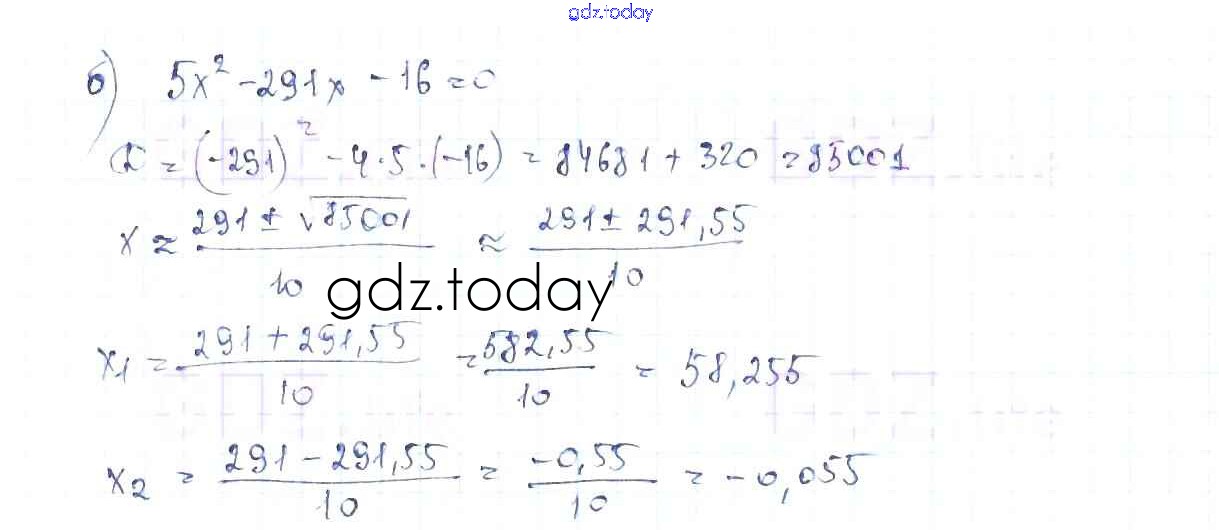 gdz.today
б) 5x² - 291x - 16 = 0
D = (-291)² - 4·5·(-16) = 84681 + 320 = 85001
x = (291 ± √85001)/10 ≈ (291 ± 291,55)/10
gdz.today
x₁ = (291 + 291,55)/10 = 582,55/10 = 58,255
x₂ = (291 - 291,55)/10 = -0,55/10 = -0,055